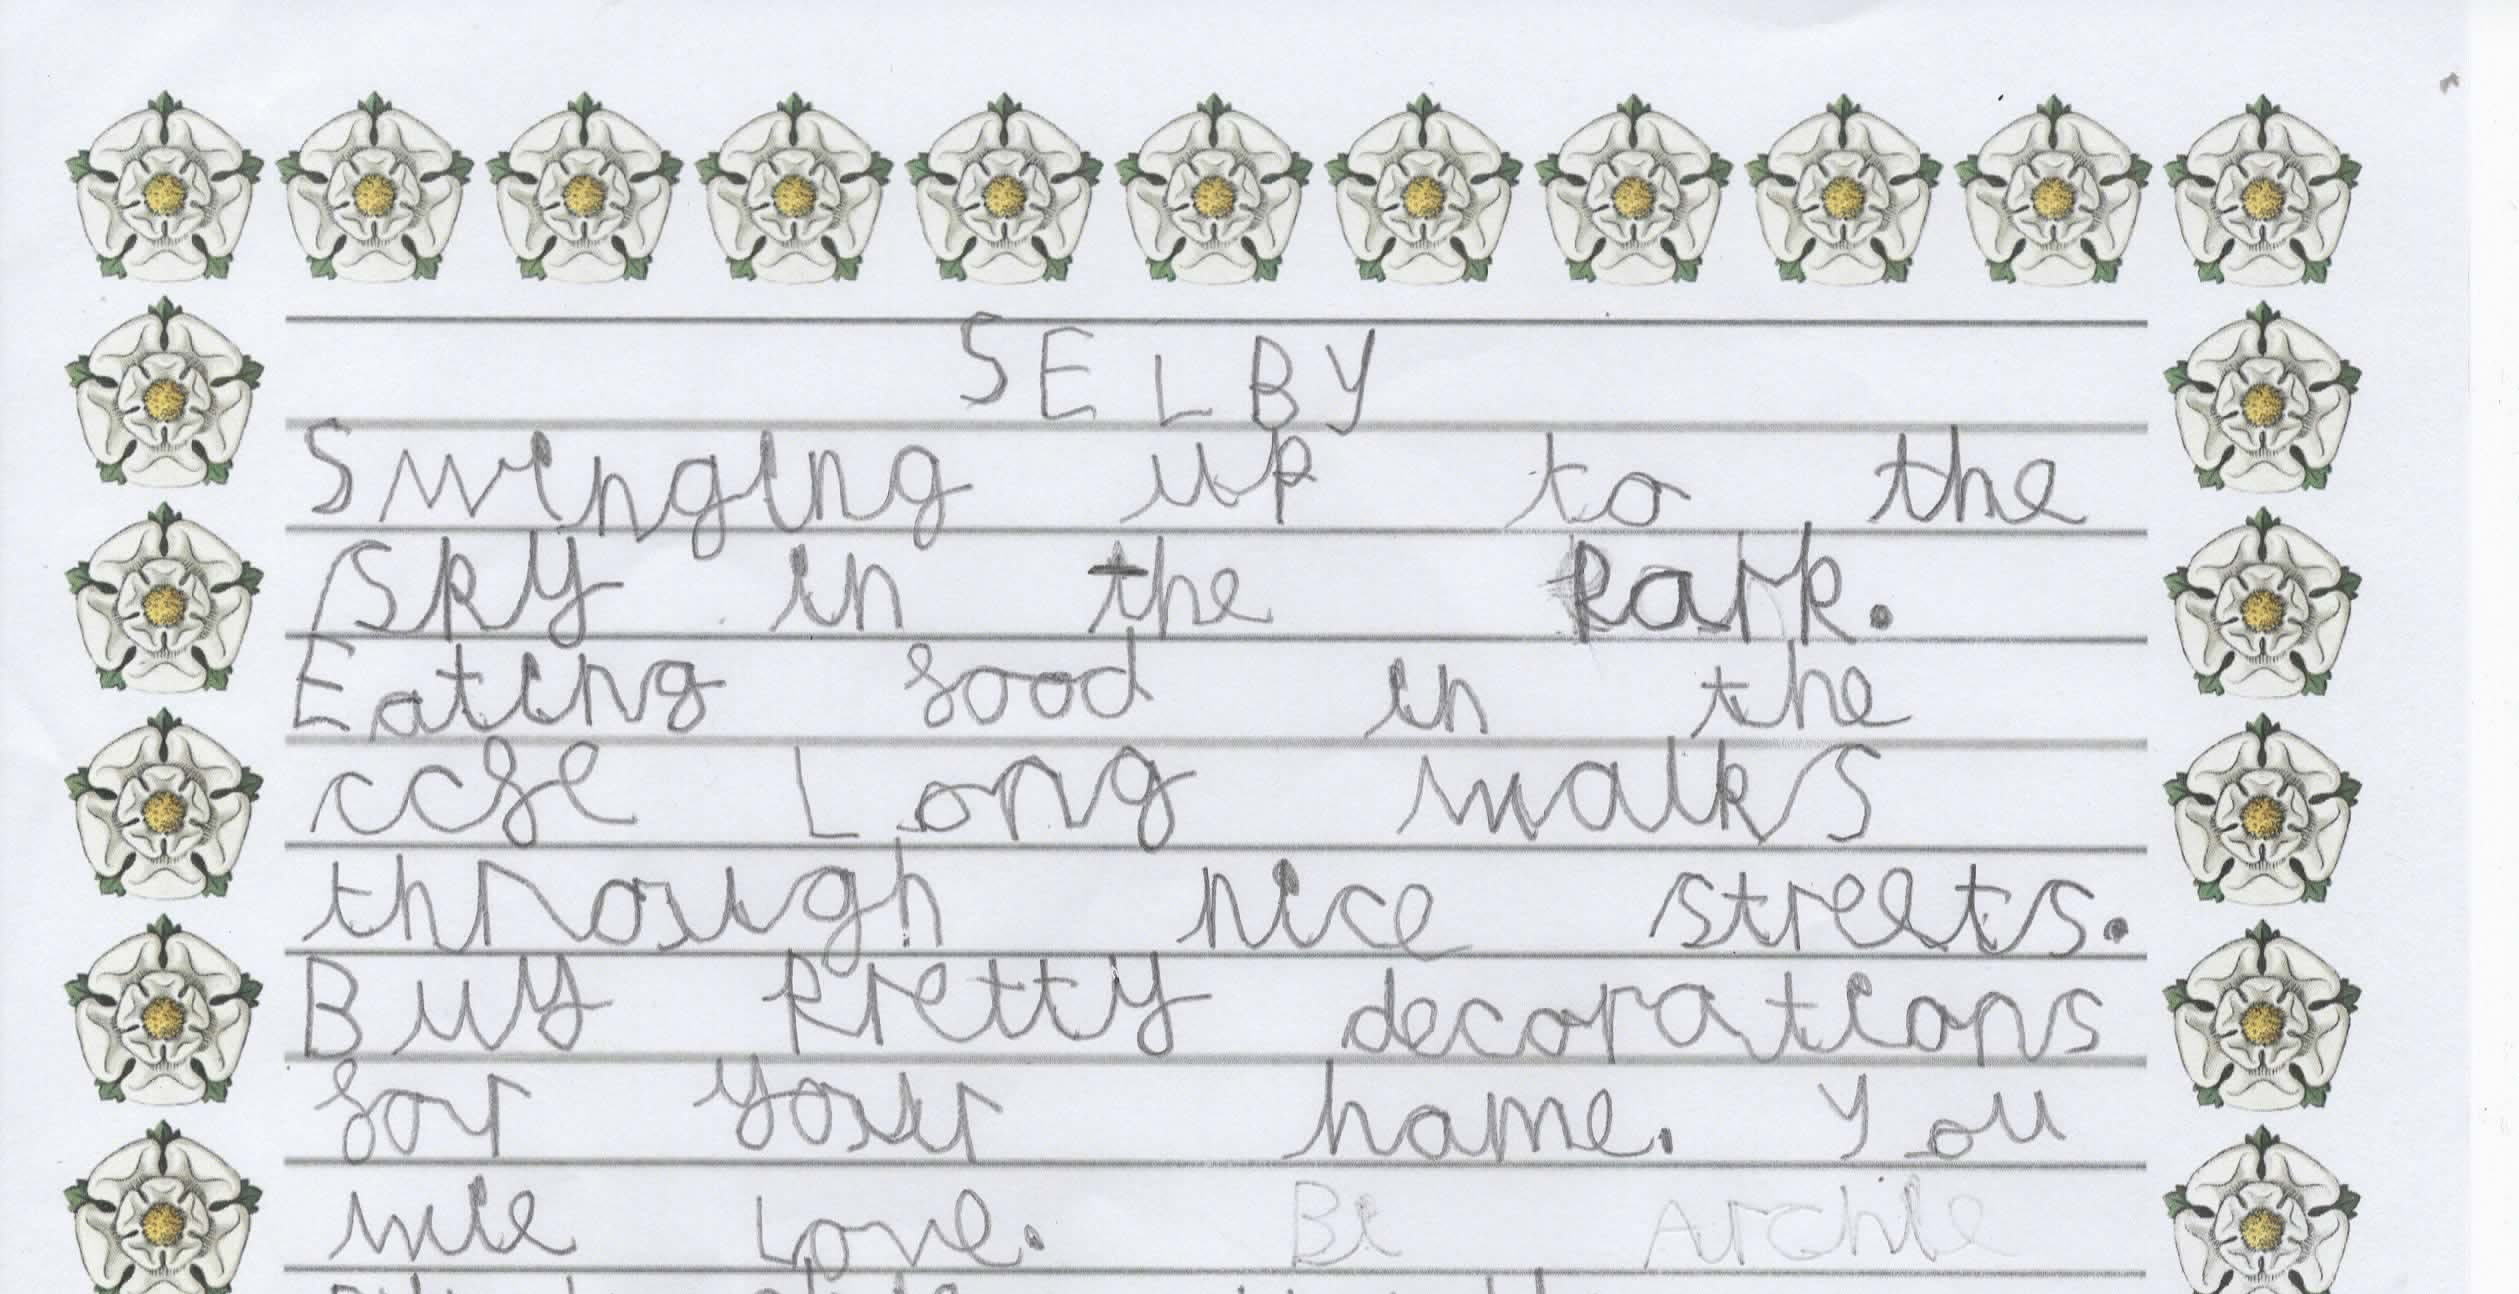 SELBY
Swinging up to the
sky in the park.
Eating food in the
ccfe Long walks
through nice streets.
Buy pretty decorations
for your home. You
Love. Bi Archie